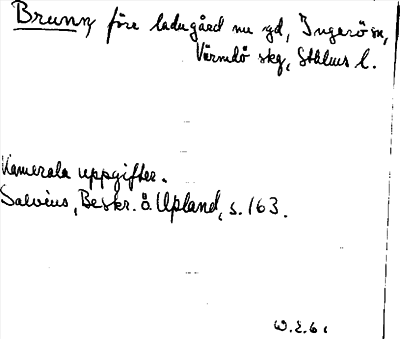 Brunn, före ladugård nu gd, Ingarö sn,
Värmdö skg, Sthlms l.
Kamerala uppgifter.
Salvius, Beskr. ö. Upland, s. 163.
W.E. 61